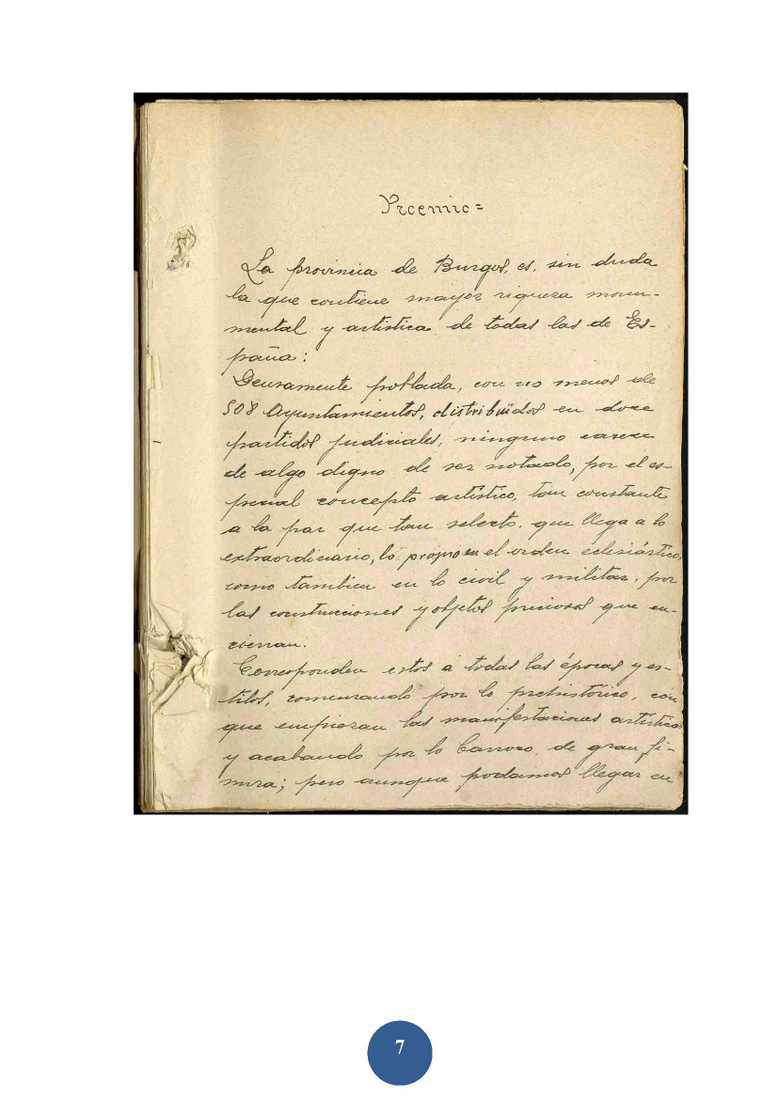 Proemio=
La provincia de Burgos, es, sin duda
la que contiene mayor riqueza monu-
mental y artistica de todas las de Es-
paña:
Densamente poblada, con no menos de
508 Ayuntamientos, distribuidos en doce
partidos judiciales, ninguno carece
de algo digno de ser notado, por el es-
pecial concepto artistico, tan constante
a la par que tan selecto, que llega a lo
extraordinario, lo propio en el orden eclesiástico,
como tambien en lo civil y militar, por
las construcciones y objetos preciosos que en-
cierran.
Corresponden estos a todas las épocas y es-
tilos, comenzando por lo prehistórico, con
que empiezan las manifestaciones artisticas
y acabando por lo barroco de gran fi-
nura; pero aunque podamos llegar en
7